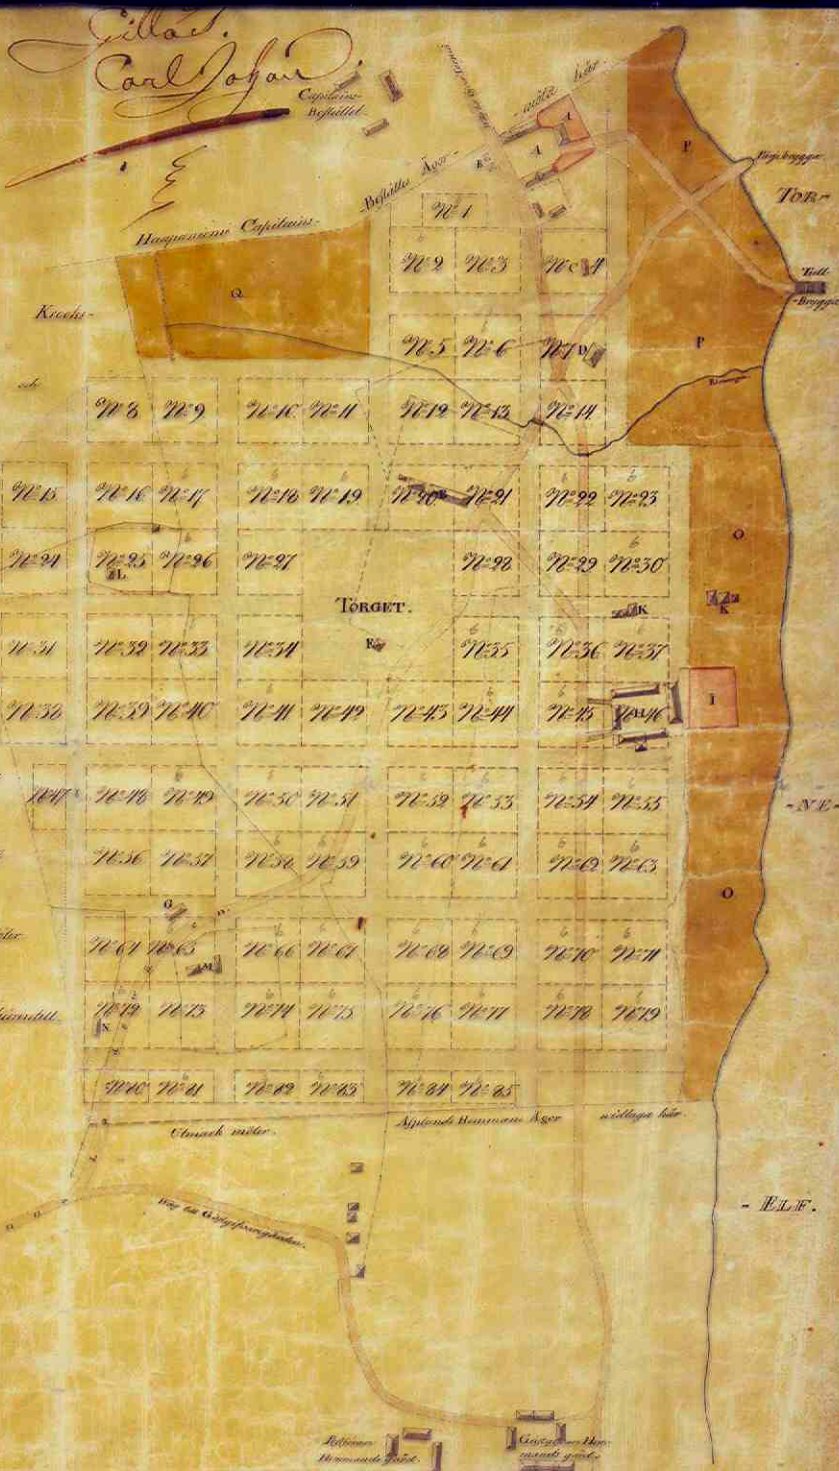 Gillas.
Carl Johan
Capitains-
Bostället
möta här
Boställs Ägor
Haapaniemi Capitains-
Färjebrygga
TOR-
Tull-
Brygga
A
A
P
B
Q
P
O
TORGET.
Nº 1
Nº 2 Nº 3 Nº C 4
Nº 5 Nº 6 Nº 7 D
Nº 8 Nº 9 Nº 10 Nº 11 Nº 12 Nº 13 Nº 14
Nº 15 Nº 16 Nº 17 Nº 18 Nº 19 Nº 20 Nº 21 Nº 22 Nº 23
Nº 24 Nº 25 Nº 26 Nº 27 Nº 28 Nº 29 Nº 30
L
K
K
F
Nº 31 Nº 32 Nº 33 Nº 34 Nº 35 Nº 36 Nº 37
Nº 38 Nº 39 Nº 40 Nº 41 Nº 42 Nº 43 Nº 44 Nº 45 Nº 46
H
I
Nº 47 Nº 48 Nº 49 Nº 50 Nº 51 Nº 52 Nº 53 Nº 54 Nº 55
-NE-
Nº 56 Nº 57 Nº 58 Nº 59 Nº 60 Nº 61 Nº 62 Nº 63
O
G
Nº 64 Nº 65 Nº 66 Nº 67 Nº 68 Nº 69 Nº 70 Nº 71
M
Nº 72 Nº 73 Nº 74 Nº 75 Nº 76 Nº 77 Nº 78 Nº 79
N
Nº 80 Nº 81 Nº 82 Nº 83 Nº 84 Nº 85
Utmark möter.
Hemmans Ägor
widtaga här.
- ELF.
Wäg till Gästgifvaregården.
Hemmans gård.